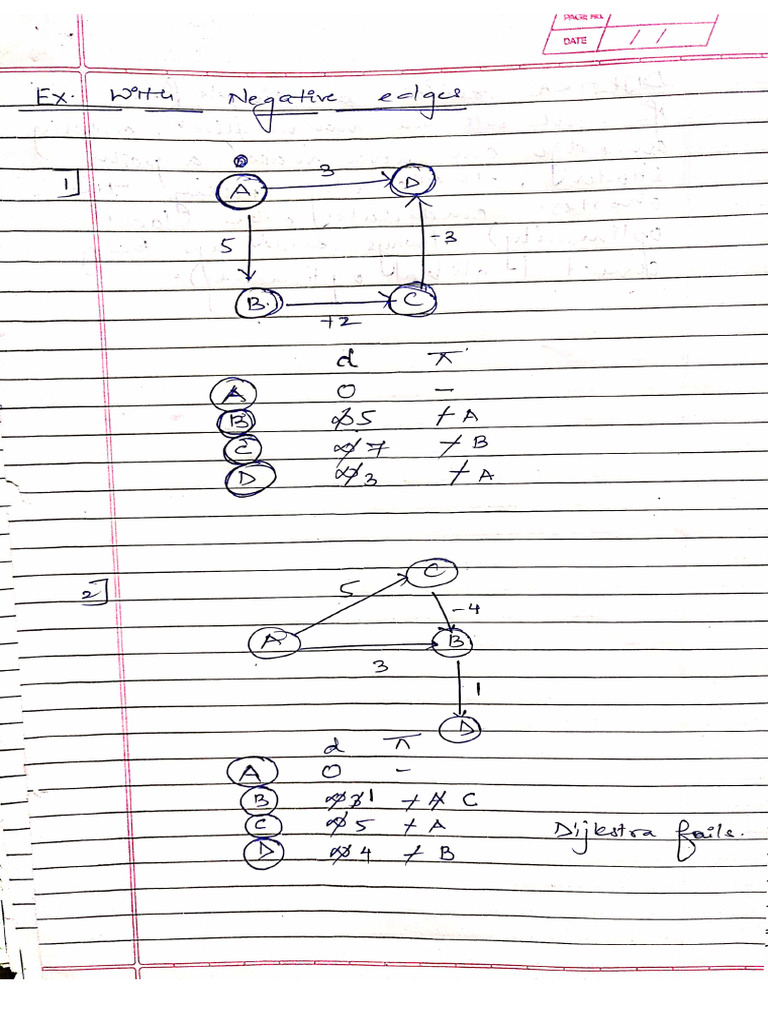 PAGE No.
DATE / /
Ex. With Negative edges
1]
A 3 D
5 -3
B C
+2
d π
A 0 -
B ∞ 5 / A
C ∞ 7 / B
D ∞ 3 / A
2]
C
5 -4
A B
3
1
D
d π
A 0 -
B ∞ 3 1 / A C
C ∞ 5 / A Dijkstra fails.
D ∞ 4 / B